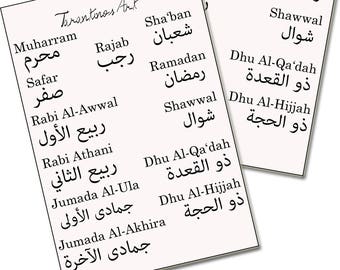 Tarantinas Art
Muharram
محرم
Safar
صفر
Rabi Al-Awwal
ربيع الأول
Rabi Athani
ربيع الثاني
Jumada Al-Ula
جمادى الأولى
Jumada Al-Akhira
جمادى الآخرة
Rajab
رجب
Sha‘ban
شعبان
Ramadan
رمضان
Shawwal
شوال
Dhu Al-Qa‘dah
ذو القعدة
Dhu Al-Hijjah
ذو الحجة
Shawwal
شوال
Dhu Al-Qa‘dah
ذو القعدة
Dhu Al-Hijjah
ذو الحجة